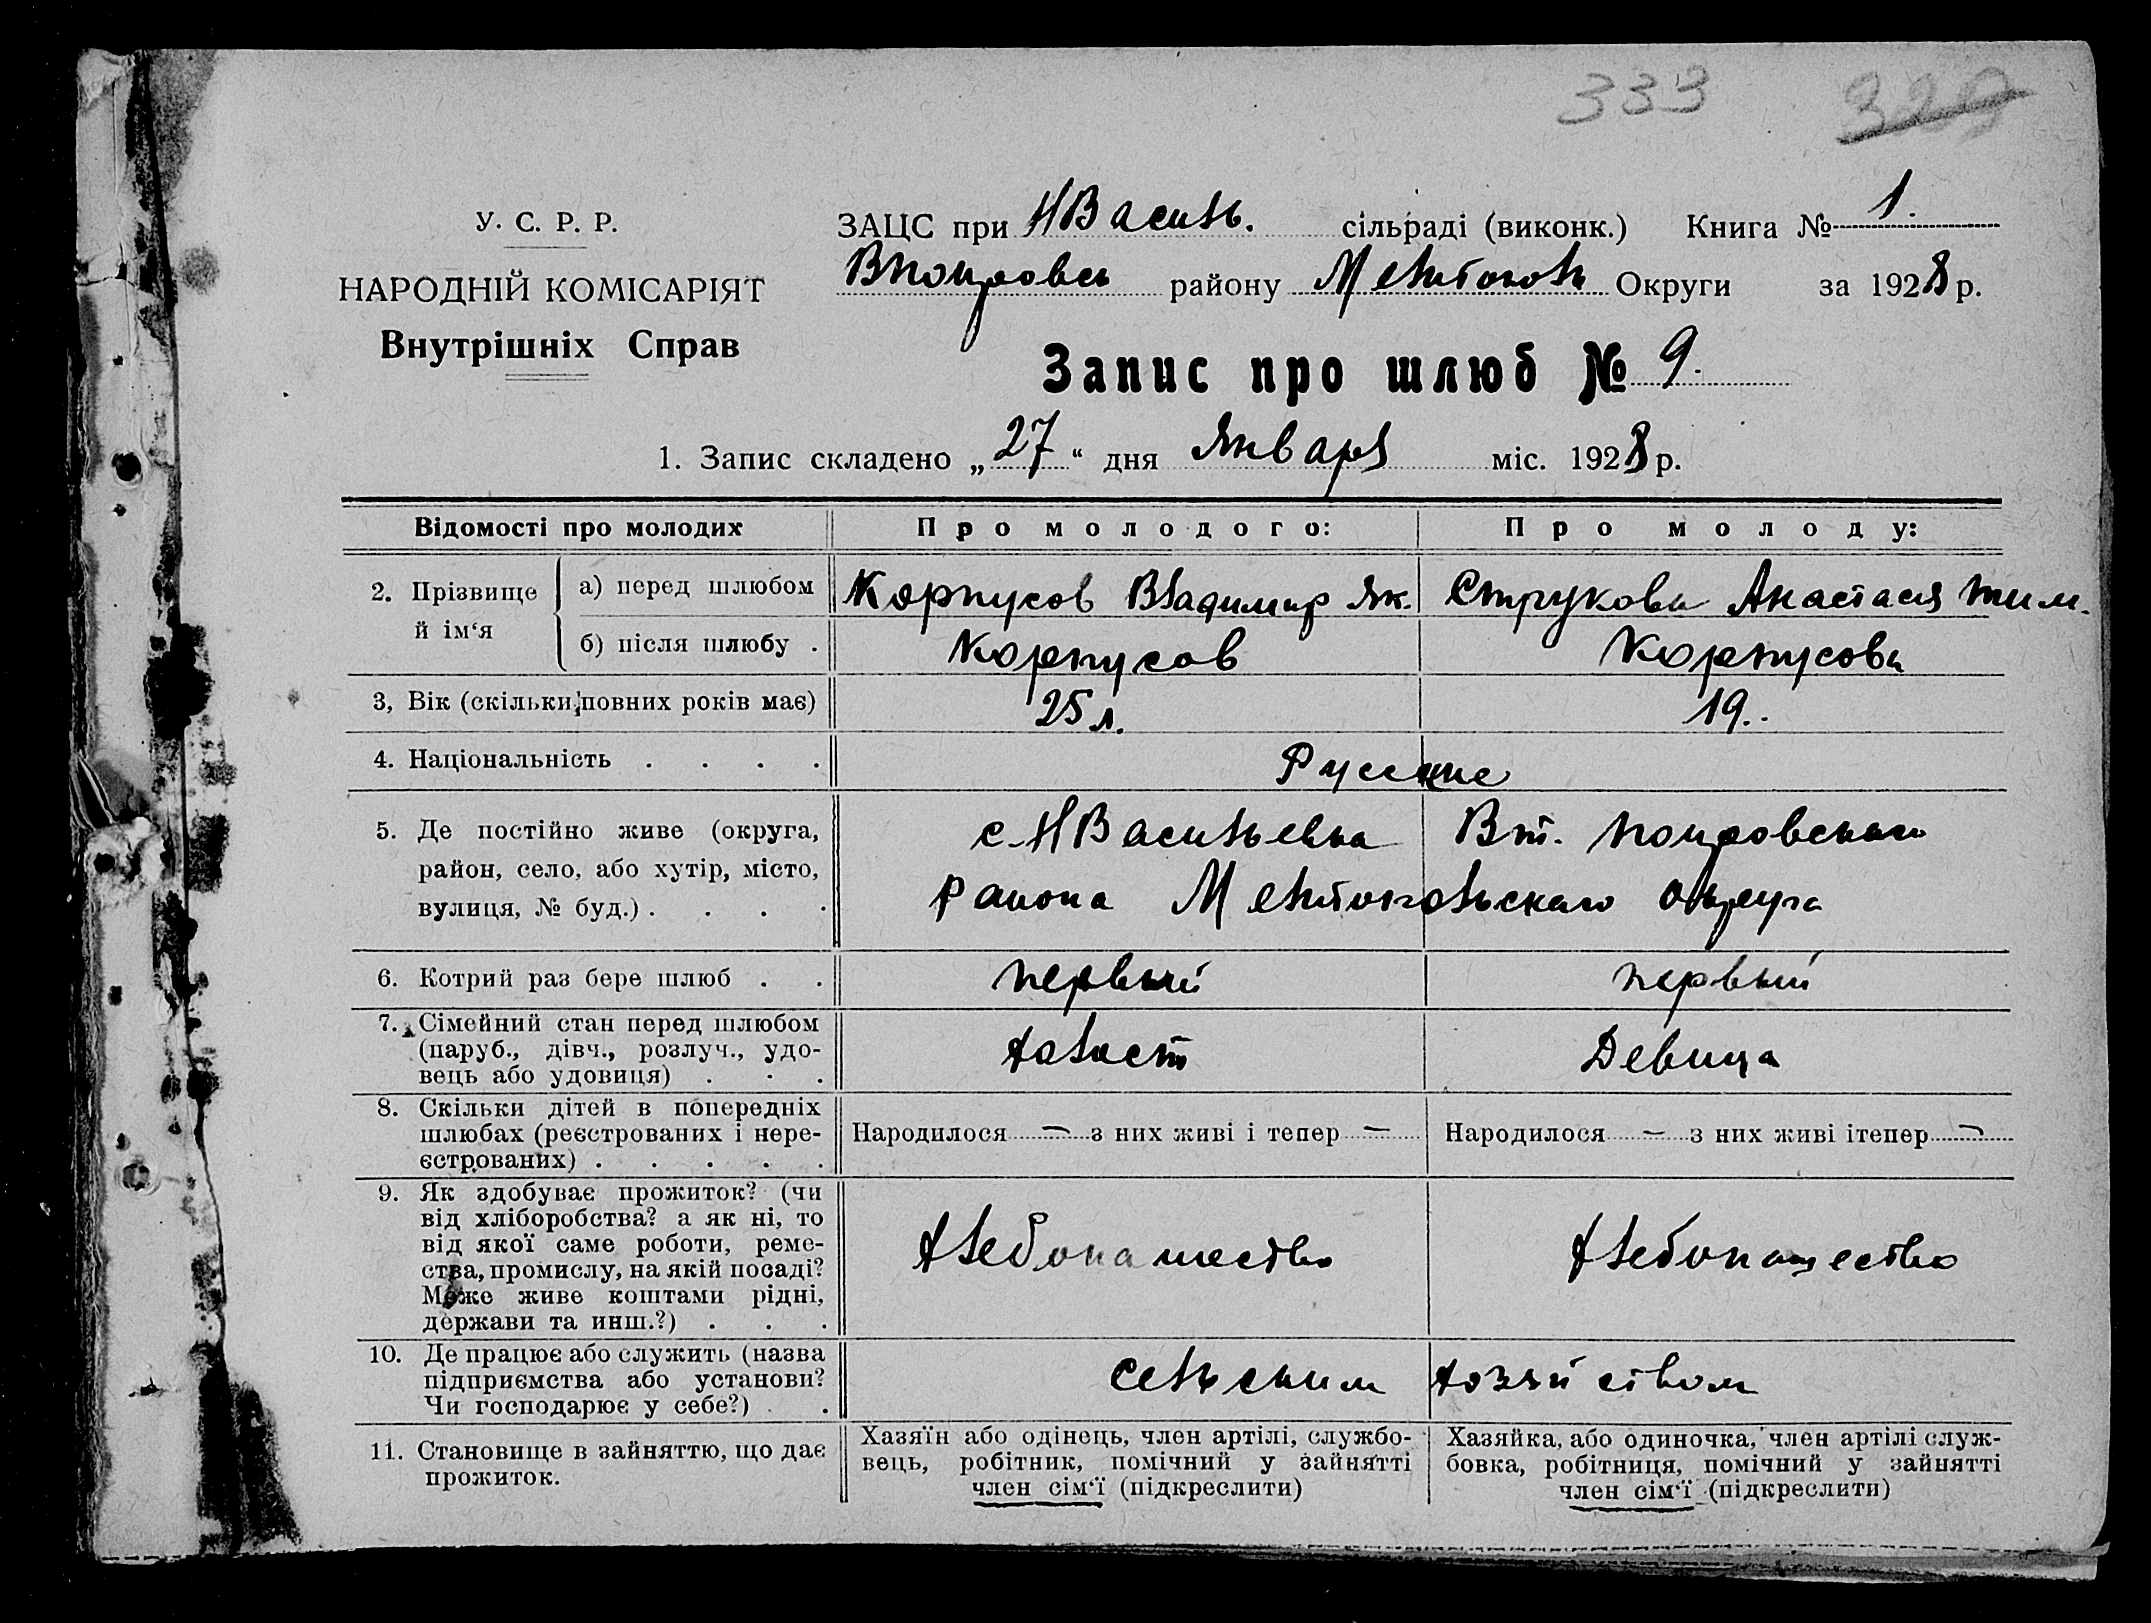 333 329
У. С. Р. Р.
НАРОДНІЙ КОМІСАРІЯТ
Внутрішніх Справ
ЗАЦС при НВасиль. сільраді (виконк.) Книга № 1.
Впокровск району Мелитополь Округи за 1928 р.
Запис про шлюб № 9.
1. Запис складено „27“ дня Января міс. 1928 р.
Відомості про молодих Про молодого: Про молоду:
2. Прізвище й ім‘я
а) перед шлюбом Корпусов Владимир Як. Струкова Анастасия Тим.
б) після шлюбу . Корпусов Корпусова
3, Вік (скільки повних років має) 25 л. 19..
4. Національність . . . . Русские
5. Де постійно живе (округа,
район, село, або хутір, місто,
вулиця, № буд.) . . . .
с. НВасильевка Вт. Покровського
района Мелитопольскаго округа
6. Котрий раз бере шлюб . . первый первый
7. Сімейний стан перед шлюбом
(паруб., дівч., розлуч., удо-
вець або удовиця) . . .
холост Девица
8. Скільки дітей в попередніх
шлюбах (реєстрованих і нере-
єстрованих) . . . . .
Народилося — з них живі і тепер — Народилося — з них живі ітепер —
9. Як здобуває прожиток? (чи
від хліборобства? а як ні, то
від якої саме роботи, реме-
ства, промислу, на якій посаді?
Може живе коштами рідні,
держави та инш.?) . . .
Хлебопашество Хлебопашество
10. Де працює або служить (назва
підприємства або установи?
Чи господарює у себе?) . .
Сельским хозяйством
11. Становище в зайняттю, що дає
прожиток.
Хазяїн або одінець, член артілі, службо-
вець, робітник, помічний у зайнятті
член сім‘ї (підкреслити)
Хазяйка, або одиночка, член артілі служ-
бовка, робітниця, помічний у зайнятті
член сім‘ї (підкреслити)